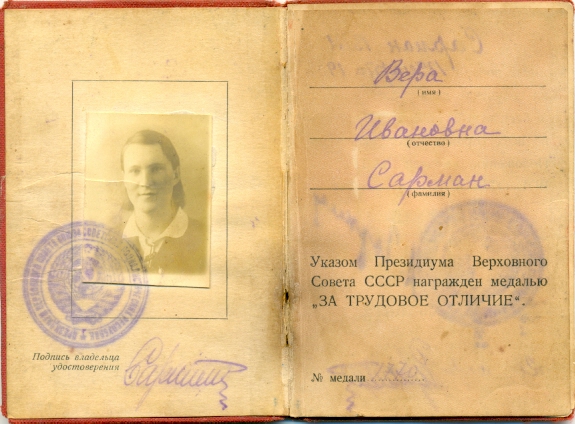 Подпись владельца
удостоверения
Вера
(имя)
Ивановна
(отчество)
Сарман
(фамилия)
Указом Президиума Верховного
Совета СССР награжден медалью
„ЗА ТРУДОВОЕ ОТЛИЧИЕ“.
№ медали